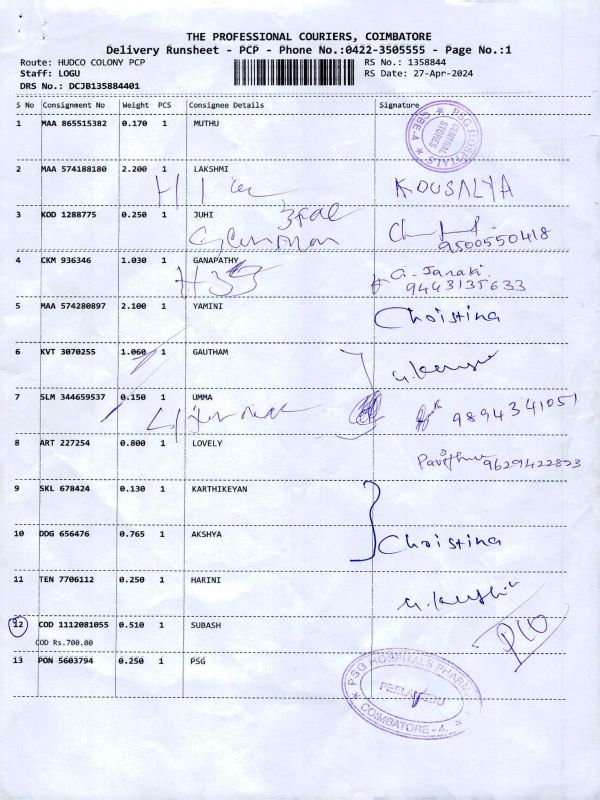 THE PROFESSIONAL COURIERS, COIMBATORE
Delivery Runsheet - PCP - Phone No.:0422-3505555 - Page No.:1
Route: HUDCO COLONY PCP RS No.: 1358844
Staff: LOGU RS Date: 27-Apr-2024
DRS No.: DCJB135884401
S No Consignment No Weight PCS Consignee Details Signature
1 MAA 865515382 0.170 1 MUTHU
PSG HOSPITALS CENTRAL STORES CBE-4
2 MAA 574188180 2.200 1 LAKSHMI
KOUSALYA
3 KOD 1288775 0.250 1 JUHI
9500550418
4 CKM 936346 1.030 1 GANAPATHY
H35
G. Janaki
9443135633
5 MAA 574280897 2.100 1 YAMINI
Christina
6 KVT 3070255 1.060 1 GAUTHAM
7 SLM 344659537 0.150 1 UMMA
9894341051
8 ART 227254 0.800 1 LOVELY
9629422823
9 SKL 678424 0.130 1 KARTHIKEYAN
10 DDG 656476 0.765 1 AKSHYA
Christina
11 TEN 7706112 0.250 1 HARINI
12 COD 1112081055 0.510 1 SUBASH
COD Rs.700.00
13 PON 5603794 0.250 1 PSG
PSG HOSPITALS PHARMACY
PEELAMEDU
COIMBATORE - 4.